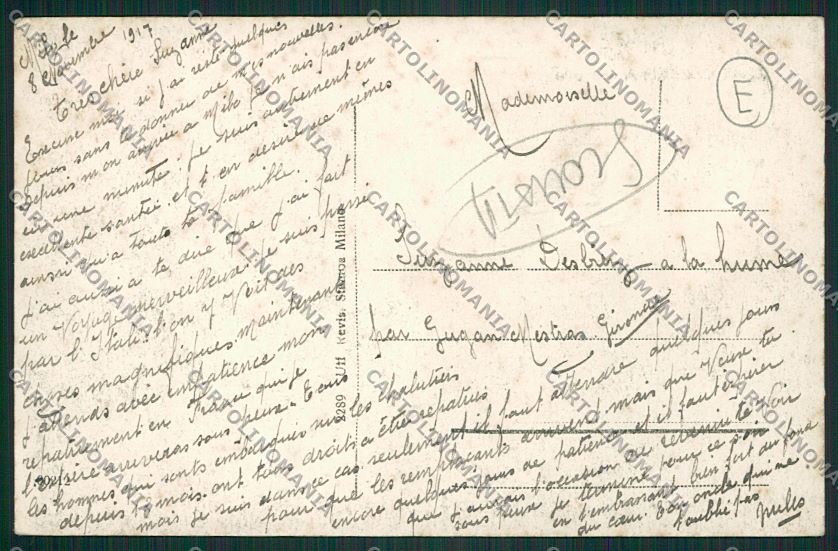 Milo le
8 Novembre 1917
Tres chère Suzanne
Excuse moi si j'ai resté quelques
jours sans te donner de mes nouvelles.
Depuis mon arrivée a Milo je n'ais pas encore
eu une minute. Je suis autrement en
excellente santé et t'en desire de mêmes
ainsi qu'a toute ta famille.
J'ai aussi a te dire que j'ai fait
un Voyage merveilleux je suis passé
par l'Italie l'on y Voit des
choses magnifiques maintenant
J'attends avec impatience mon
repatriement en France qui je
l'espère arriveras sous peux. Tous
les hommes qui sont embarqués sur les chalutiers
depuis 18 mois ont tous droits a être repatriés
mais je suis dans ce cas seulement il faut attendre quelques jours
pour que les remplaçants arrivent mais que Veux tu
encore quelques jours de patience et il faut espérer
que j'aurais l'occasion de revenir te Voir
sous peux. Je termine pour ce soir
en t'embrassant bien fort du fond
du cœur. Ton oncle qui ne
t'oublie pas
Jules
Mademoiselle
Suzanne Desbieys a la hume
par Gujan Mestras Gironde
E
2289 Uff Revis. Stampa Milano
CARTOLINOMANIA